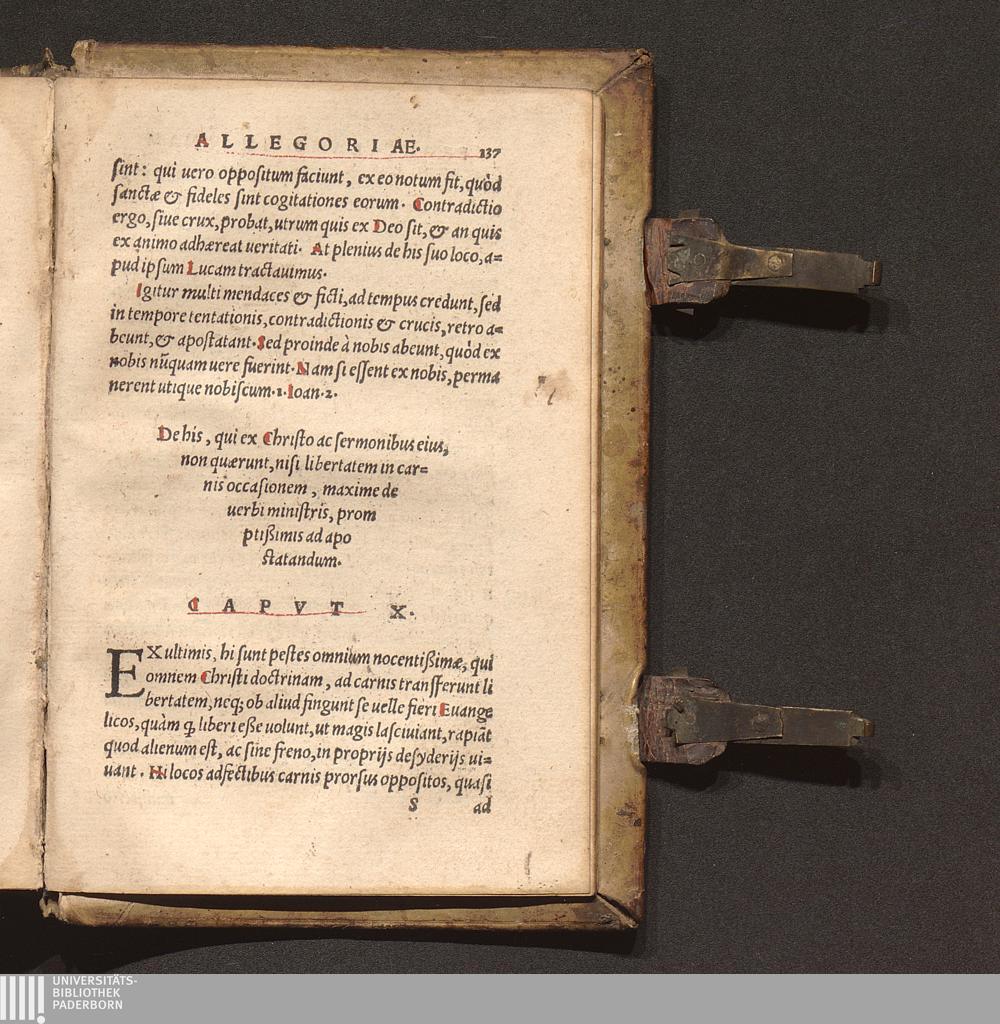 ALLEGORIAE.
137
ſint: qui uero oppoſitum faciunt, ex eo notum fit, quòd
ſanctæ & fideles ſint cogitationes eorum. Contradictio
ergo, ſiue crux, probat, utrum quis ex Deo ſit, & an quis
ex animo adhæreat ueritati. At plenius de his ſuo loco, a=
pud ipſum Lucam tractauimus.
Igitur multi mendaces & ficti, ad tempus credunt, ſed
in tempore tentationis, contradictionis & crucis, retro a=
beunt, & apoſtatant. Sed proinde à nobis abeunt, quòd ex
nobis nũquam uere fuerint. Nam ſi eſſent ex nobis, perma
nerent utique nobiſcum. 1. Ioan. 2.
De his, qui ex Chriſto ac ſermonibus eius,
non quærunt, niſi libertatem in car=
nis occaſionem, maxime de
uerbi miniſtris, prom
ptißimis ad apo
ſtatandum.
CAPVT X.
EX ultimis, hi ſunt peſtes omnium nocentißimæ, qui
omnem Chriſti doctrinam, ad carnis tranſferunt li
bertatem, neq; ob aliud fingunt ſe uelle fieri Euange
licos, quàm q̃ liberi eße uolunt, ut magis laſciuiant, rapiãt
quod alienum eſt, ac ſine freno, in proprijs deſyderijs ui=
uant. Hi locos adfectibus carnis prorſus oppoſitos, quaſi
S ad
UNIVERSITÄTS-
BIBLIOTHEK
PADERBORN